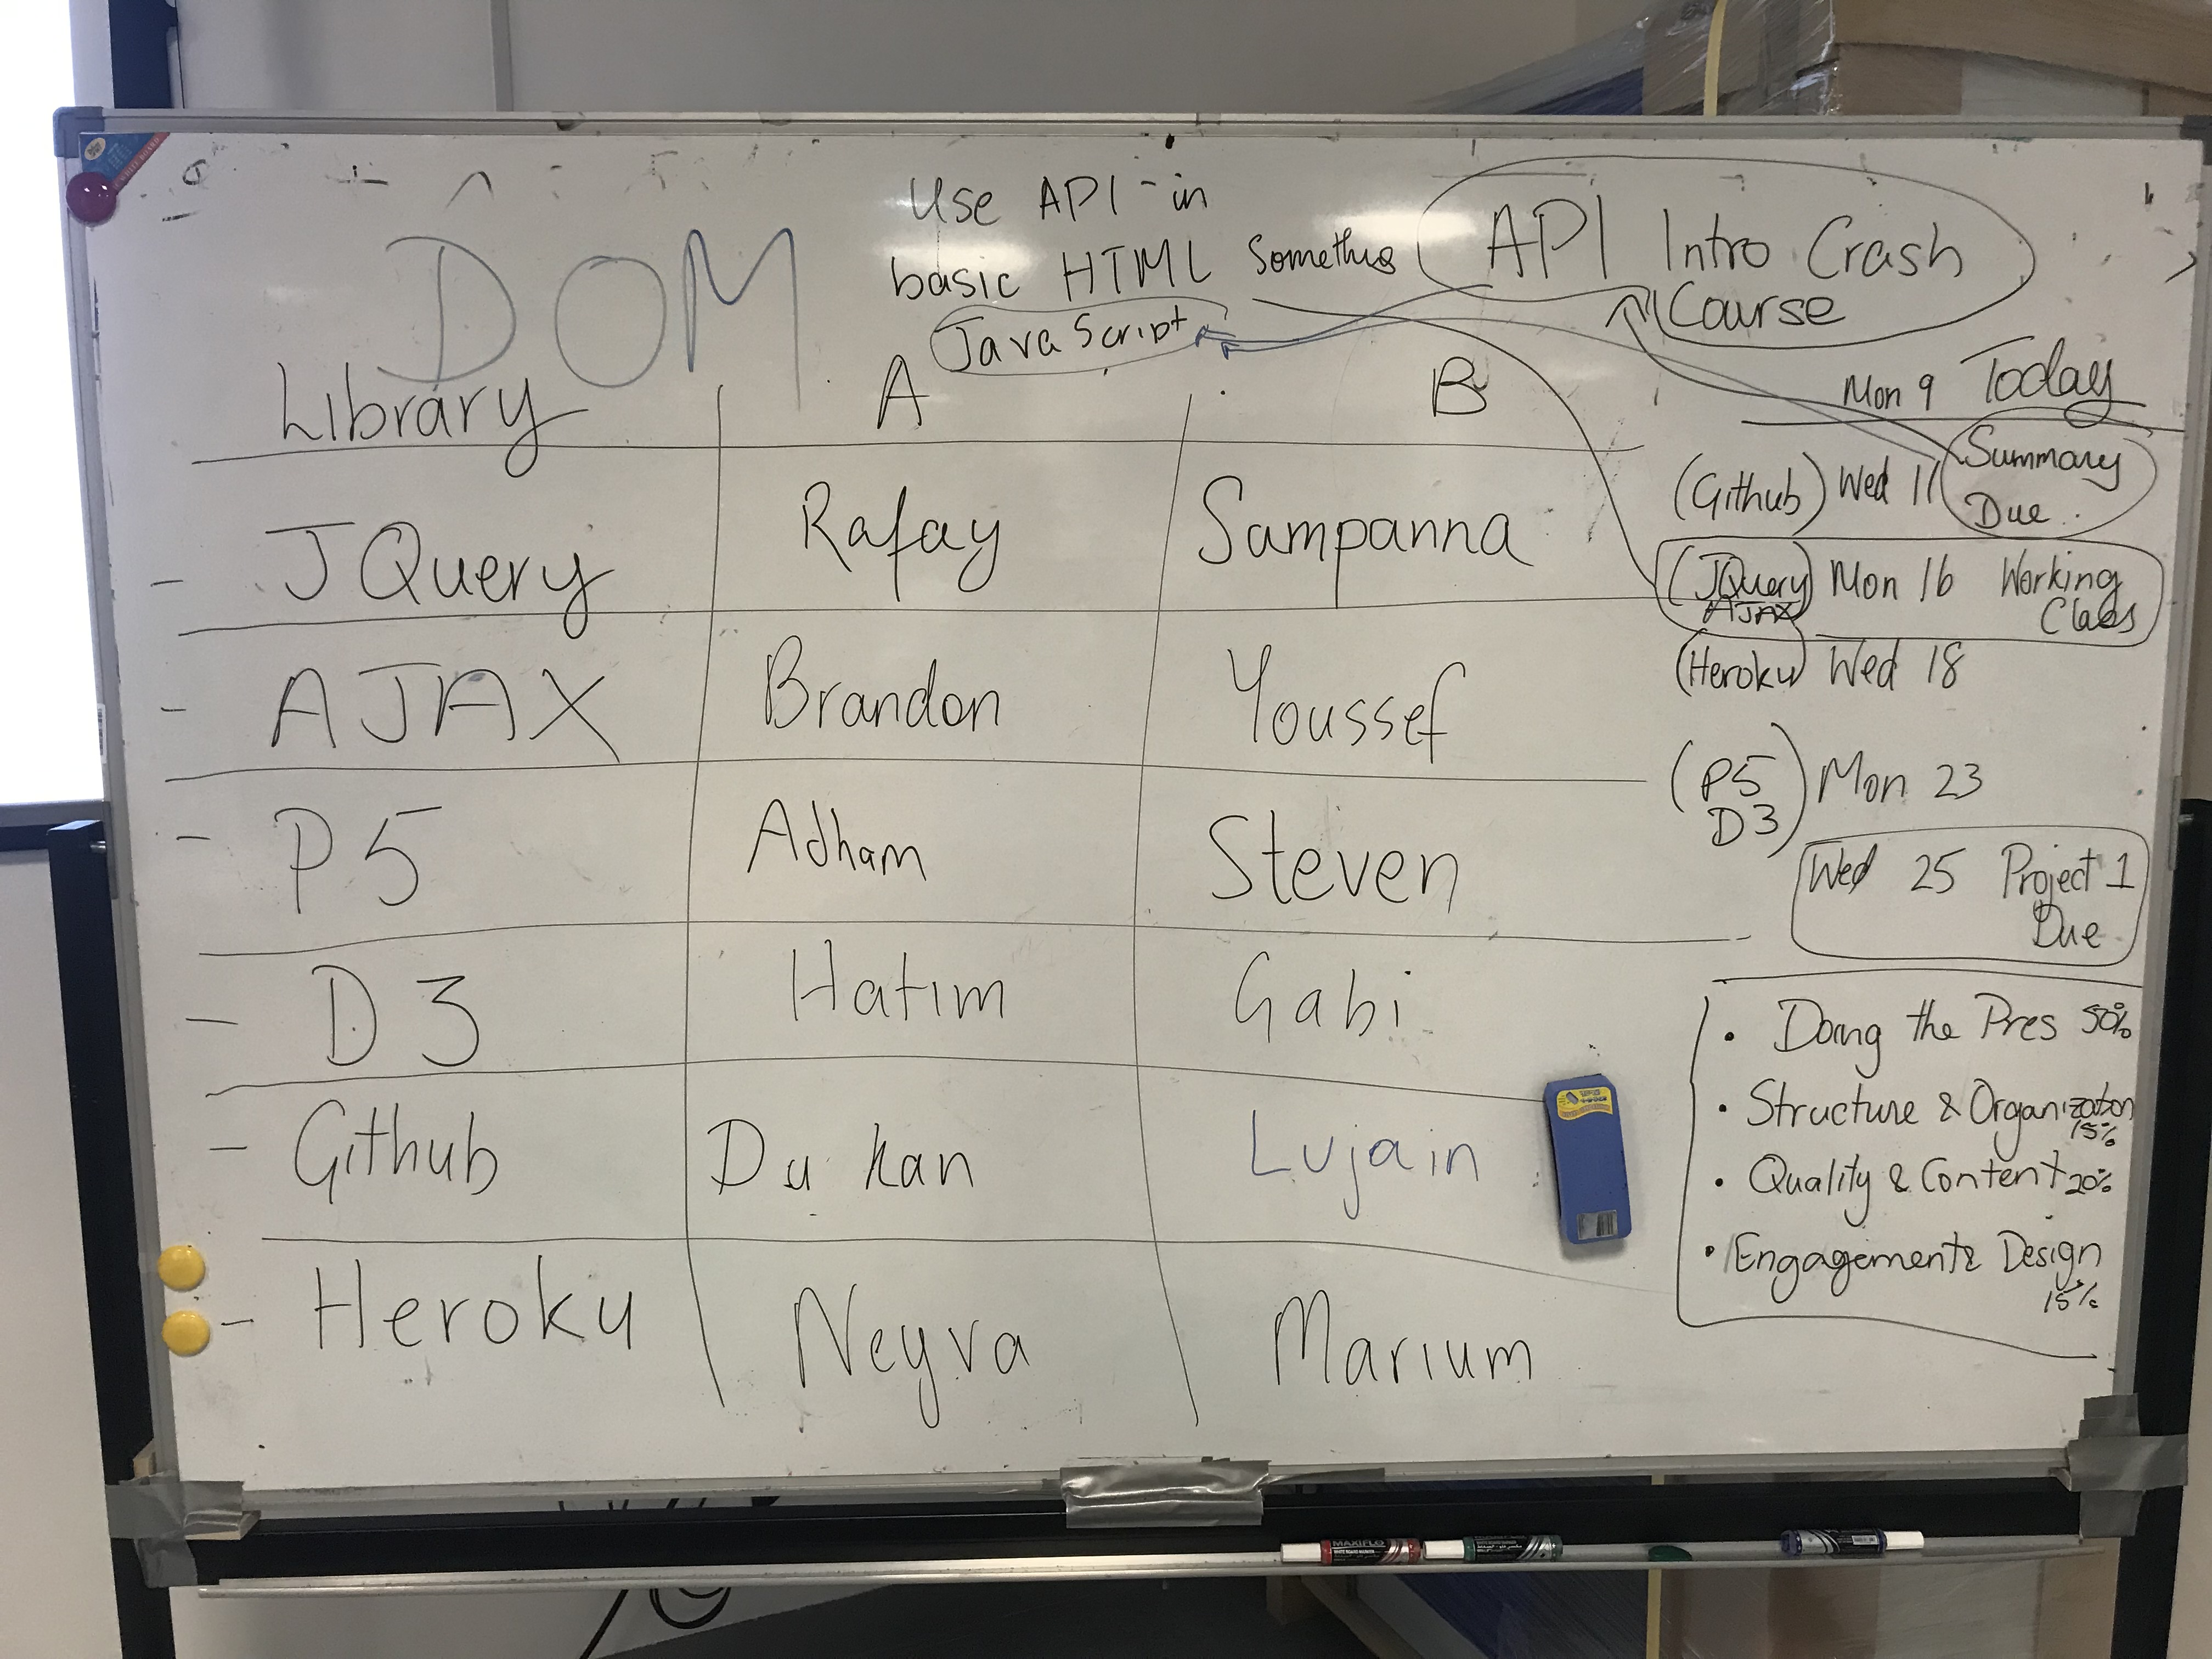 Use API-in
basic HTML Somethig
JavaScript
API Intro Crash
Course
DOM
Library A B
- JQuery Rafay Sampanna
- AJAX Brandon Youssef
- P5 Adham Steven
- D3 Hatim Gabi
- Github Du kan Lujain
- Heroku Neyva Marium
Mon 9 Today
(Github) Wed 11 Summary
Due
(JQuery) Mon 16 Working
AJAX Class
(Heroku) Wed 18
(P5) Mon 23
D3
Wed 25 Project 1
Due
• Doing the Pres 50%
• Structure & Organization
15%
• Quality & Content 20%
• Engagement & Design
15%
MAXIFLO